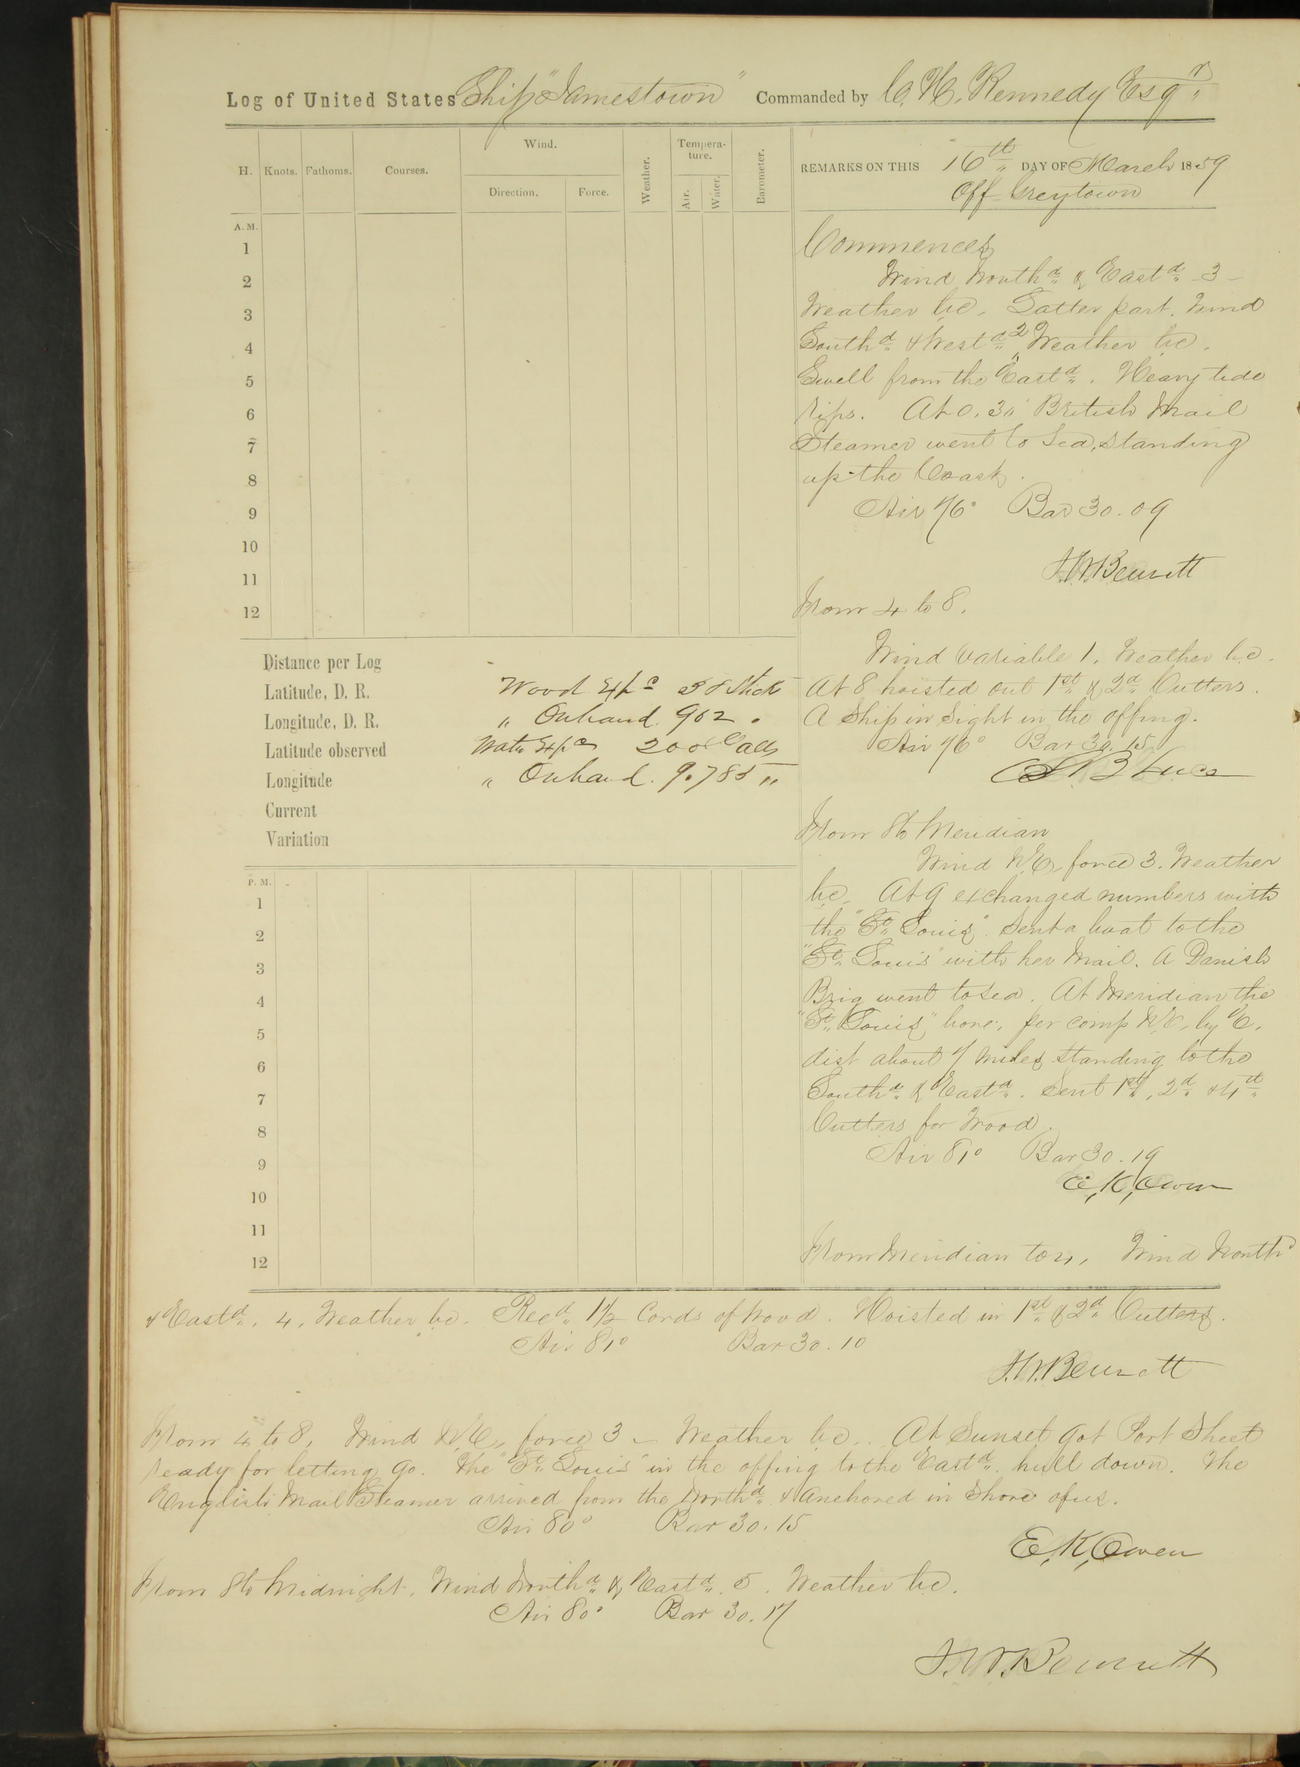 Log of United States Ship "Jamestown" Commanded by C. H. Kennedy Esqr.
H. Knots. Fathoms. Courses. Wind. Direction. Force. Weather. Tempera-ture. Air. Water. Barometer.
REMARKS ON THIS 16th DAY OF March 1859
Off Greytown
A. M.
1
2
3
4
5
6
7
8
9
10
11
12
Commences
Wind Northd & Eastd 3
Weather b.c. Latter part. Wind
Southd & Westd 2 Weather b.c.
Swell from the Eastd. Heavy tide
rips. At 0.30 British Mail
Steamer went to Sea, standing
up the Coast.
Air 76° Bar 30.09
J. W. Bennett
From 4 to 8.
Wind variable 1. Weather b.c.
At 8 hoisted out 1st & 2d Cutters.
A Ship in Sight in the offing.
Air 76° Bar 30.15
S. B. Luce
Distance per Log
Latitude, D. R.
Longitude, D. R.
Latitude observed
Longitude
Current
Variation
Wood Expd Sticks
" Onhand 902 "
Water Expd 200 Galls
" Onhand. 9.785 "
From 8 to Meridian
Wind N.E. force 3. Weather
b.c. At 9 exchanged numbers with
the "St. Louis". Sent a boat to the
"St. Louis" with her Mail. A Danish
Brig went to Sea. At Meridian the
"St. Louis" bore, per comp N.E. by E.
dist about 7 miles standing to the
Southd & Eastd. Sent 1st, 2d & 4th
Cutters for Wood.
Air 81° Bar 30.19
E. K. Owen
P. M.
1
2
3
4
5
6
7
8
9
10
11
12
From Meridian to 4. Wind Northd
& Eastd. 4. Weather b.c. Recd 1½ Cords of Wood. Hoisted in 1st & 2d Cutters.
Air 81° Bar 30.10
J. W. Bennett
From 4 to 8. Wind N.E. force 3 Weather b.c. At Sunset got Port Sheet
ready for letting go. The "St. Louis" in the offing to the Eastd. hull down. The
English Mail Steamer arrived from the Northd & Anchored in Shore of us.
Air 80° Bar 30.15
E. K. Owen
From 8 to Midnight. Wind Northd & Eastd. 5. Weather b.c.
Air 80° Bar 30.17
J. W. Bennett